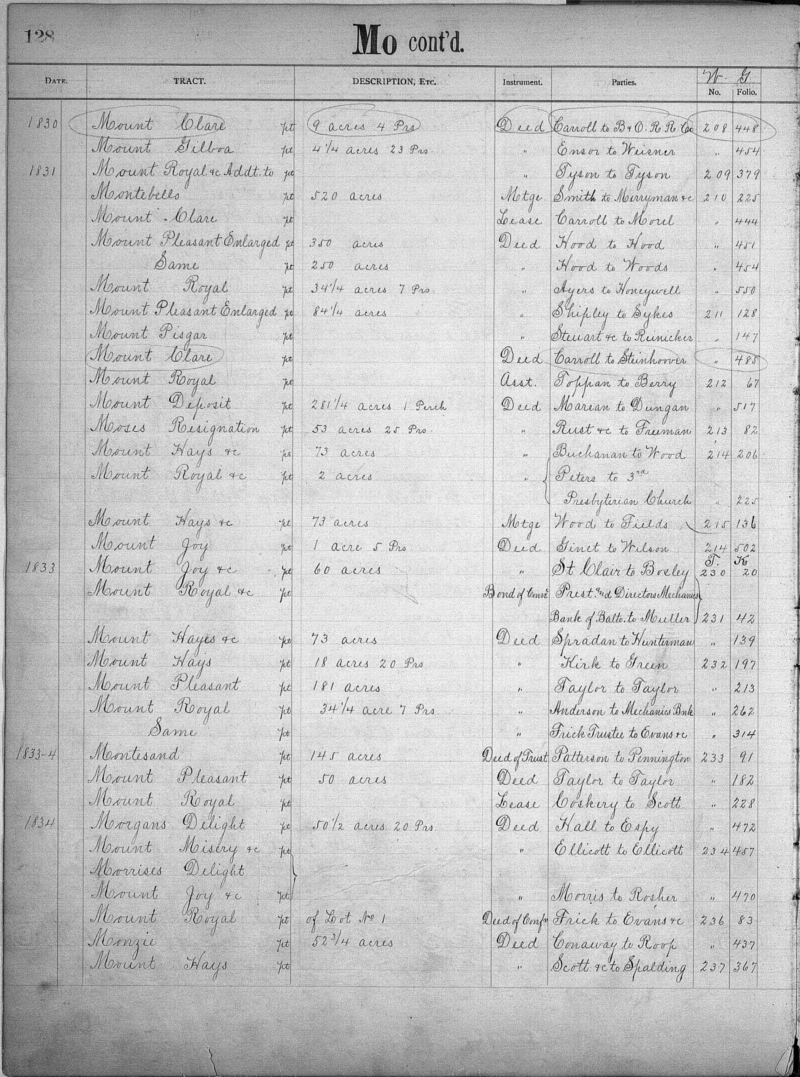 128
Mo cont'd.
DATE. TRACT. DESCRIPTION, ETC. Instrument. Parties. W. G.
No. Folio.
1830 Mount Clare pt 9 acres 4 Prs Deed Carroll to B & O. R R Co 208 448
Mount Gilboa pt 4 1/4 acres 23 Prs " Ensor to Weisner " 454
1831 Mount Royal & Addt. to pt " Tyson to Tyson 209 379
Montebello 520 acres Mtge Smith to Merryman &c 210 225
Mount Clare pt Lease Carroll to Morel " 444
Mount Pleasant Enlarged pt 350 acres Deed Hood to Hood " 451
Same pt 250 acres " Hood to Woods " 454
Mount Royal pt 34 1/4 acres 7 Prs " Ayers to Honeywell " 550
Mount Pleasant Enlarged pt 84 1/4 acres " Shipley to Sykes 211 128
Mount Pisgar pt " Steuart &c to Reinicker " 147
Mount Clare pt Deed Carroll to Steinhoover " 485
Mount Royal pt Asst. Toppan to Berry 212 67
Mount Deposit pt 281 1/4 acres 1 Perch Deed Marean to Dungan " 517
Moses Resignation pt 53 acres 25 Prs " Rust &c to Freeman 213 82
Mount Hays &c pt 73 acres " Buchanan to Wood 214 206
Mount Royal &c pt 2 acres " Peters to 3rd
Presbyterian Church " 225
Mount Hays &c pt 73 acres Mtge Wood to Fields 215 136
Mount Joy pt 1 acre 5 Prs Deed Ginet to Wilson 214 502
T. K
1833 Mount Joy &c pt 60 acres " St Clair to Bosley 230 20
Mount Royal &c pt Bond of Conve Prest. and Directors Mechanics
Bank of Balto. to Muller 231 42
Mount Hayes &c pt 73 acres Deed Spradan to Hunterman " 139
Mount Hays pt 18 acres 20 Prs " Kirk to Green 232 197
Mount Pleasant pt 181 acres " Taylor to Taylor " 213
Mount Royal pt 34 1/4 acre 7 Prs " Anderson to Mechanics Bnk " 262
Same pt " Frick Trustee to Evans &c " 314
1833-4 Montesand pt 145 acres Deed of Trust Patterson to Pennington 233 91
Mount Pleasant pt 50 acres Deed Taylor to Taylor " 182
Mount Royal pt Lease Coskery to Scott " 228
1834 Morgans Delight pt 50 1/2 acres 20 Prs Deed Hall to Espy " 472
Mount Misery &c pt " Ellicott to Ellicott 234 457
Morrises Delight
Mount Joy &c pt " Morris to Rosher " 470
Mount Royal pt of Lot No 1 Deed of Confn Frick to Evans &c 236 83
Monzie pt 52 3/4 acres Deed Conaway to Roop " 437
Mount Hays pt " Scott &c to Spalding 237 367